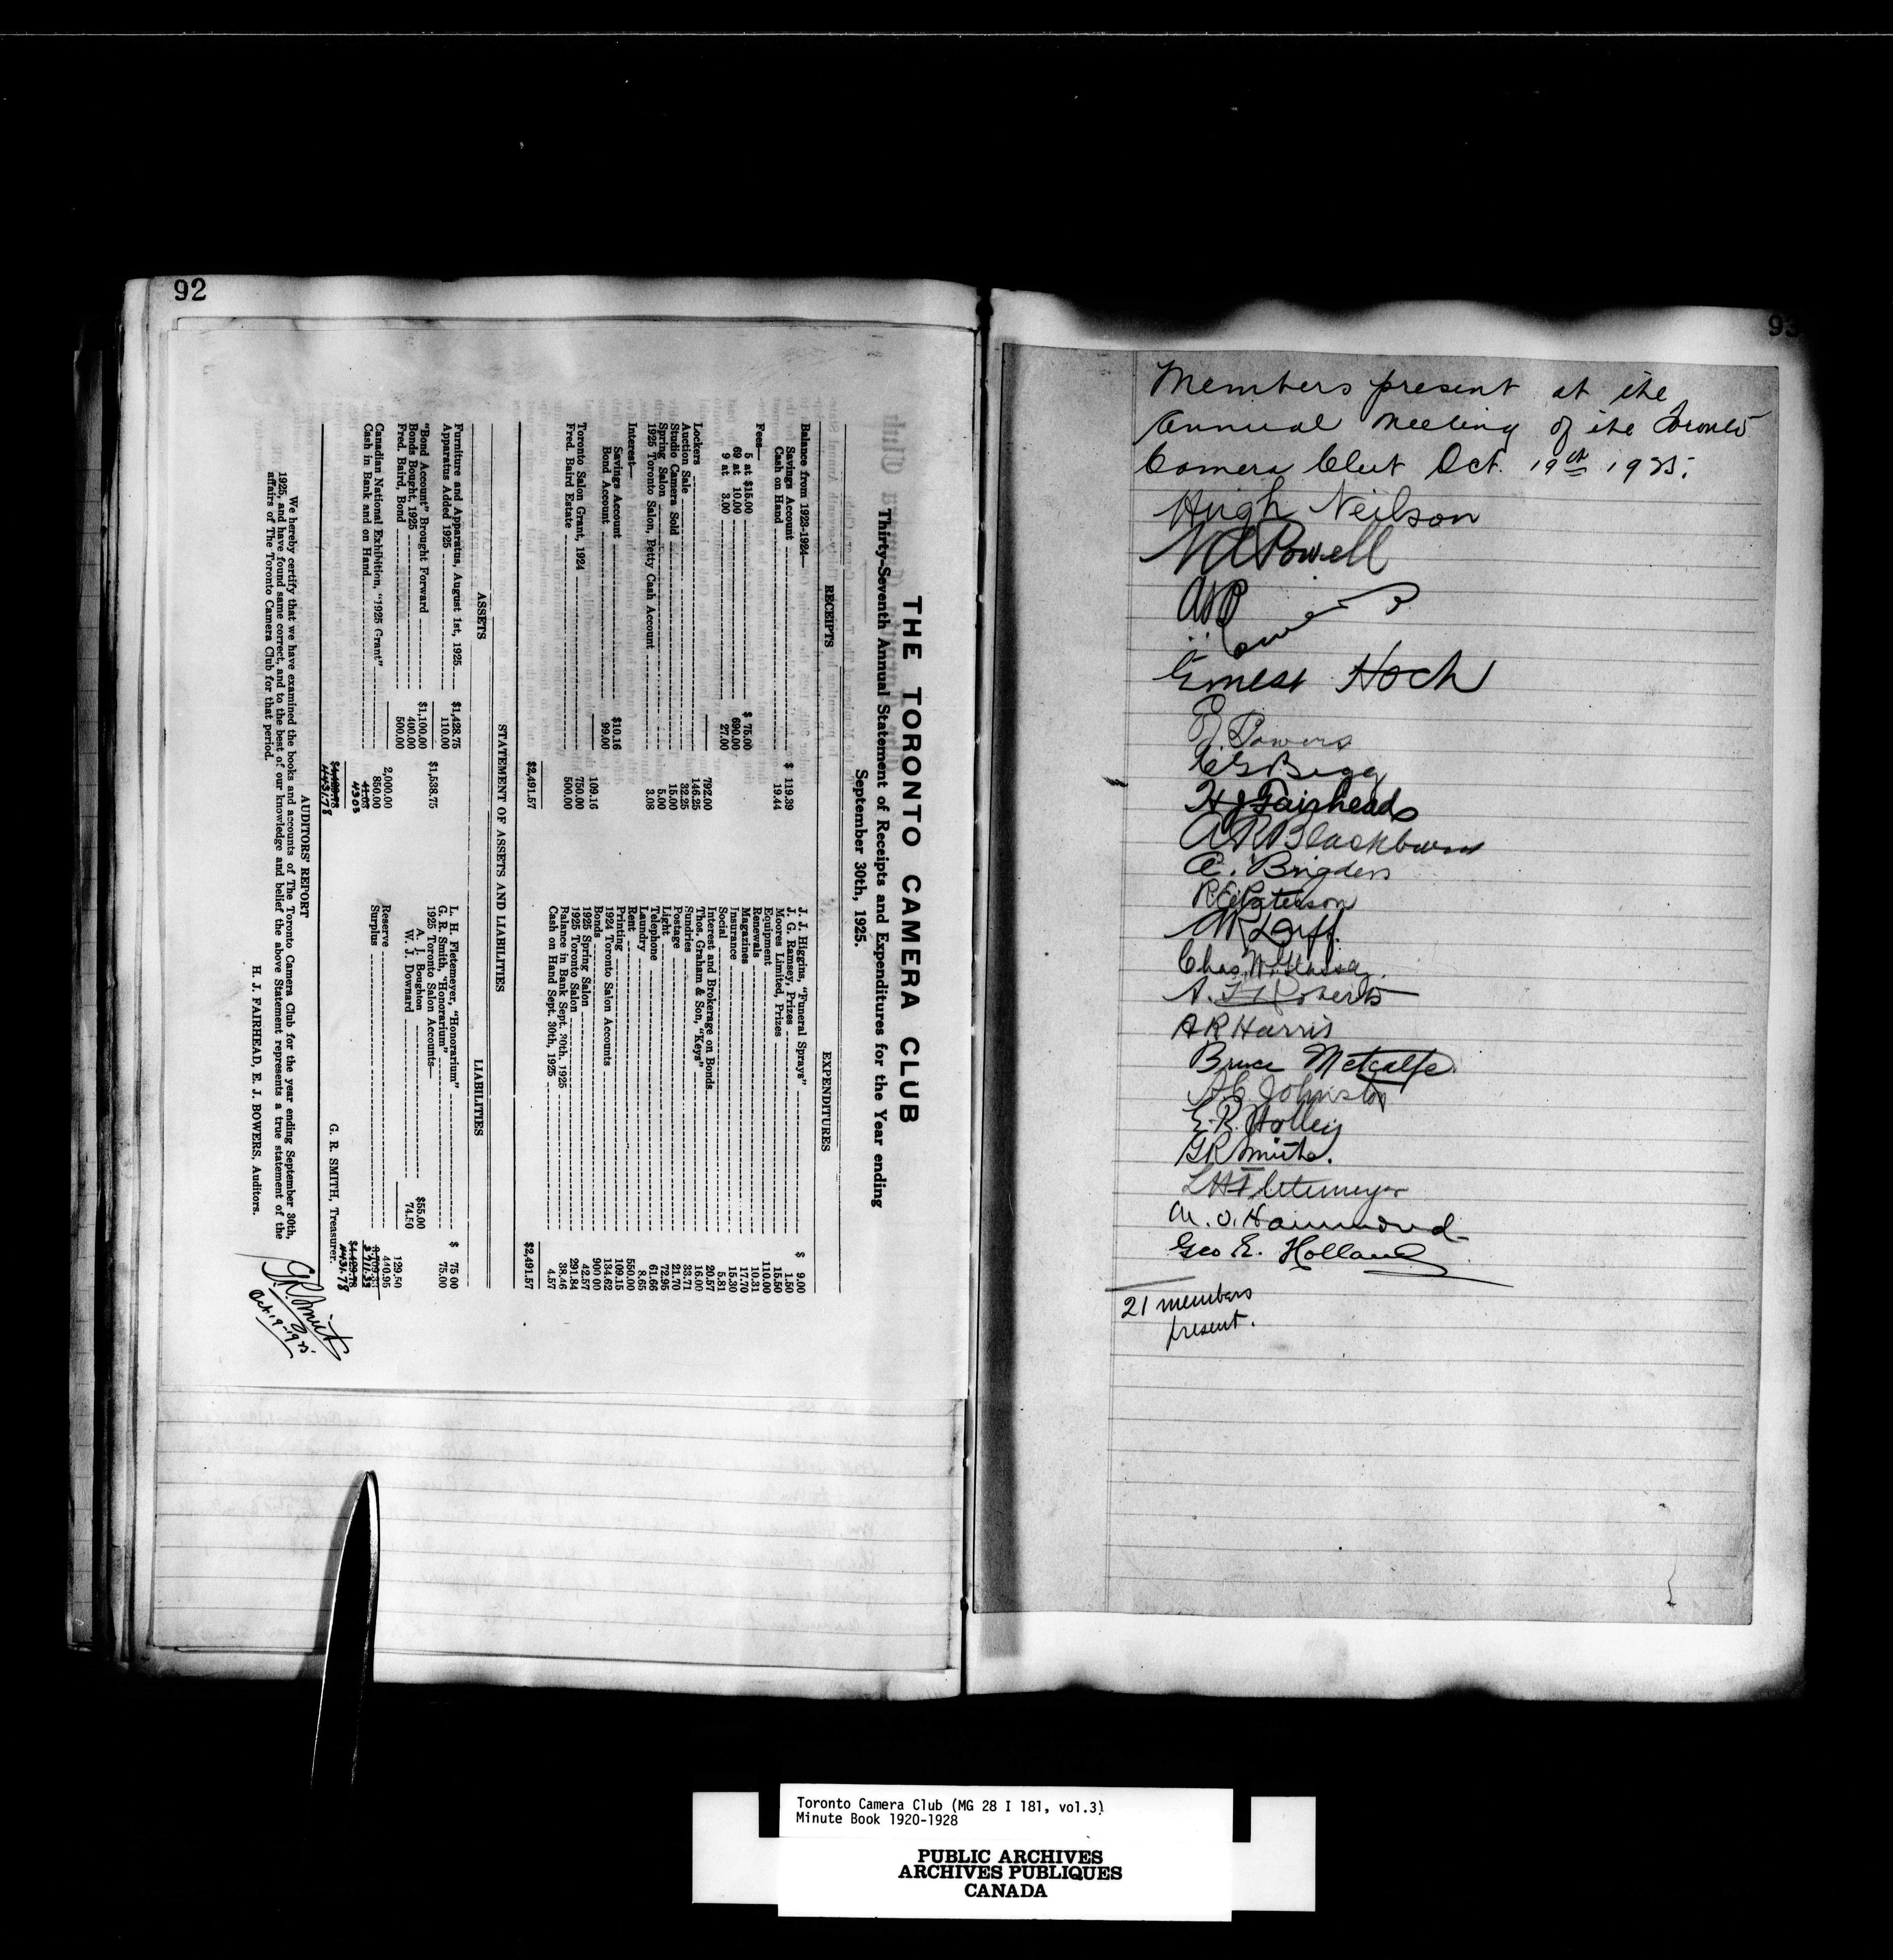 92
THE TORONTO CAMERA CLUB
Thirty-Seventh Annual Statement of Receipts and Expenditures for the Year ending
September 30th, 1925.
RECEIPTS
Balance from 1923-1924—
Savings Account $ 119.39
Cash on Hand 19.44
Fees—
5 at $15.00 $ 75.00
69 at 10.00 690.00
9 at 3.00 27.00
792.00
Lockers 146.25
Auction Sale 32.25
Studio Camera Sold 15.00
Spring Salon 5.00
1925 Toronto Salon, Petty Cash Account 3.08
Interest—
Savings Account $10.16
Bond Account 99.00
109.16
Toronto Salon Grant, 1924 750.00
Fred. Baird Estate 500.00
$2,491.57
EXPENDITURES
J. J. Higgins, "Funeral Sprays" $ 9.00
J. G. Ramsey, Prizes 1.50
Moores Limited, Prizes 15.50
Equipment 110.00
Renewals 10.31
Magazines 17.70
Insurance 15.30
Social 5.81
Interest and Brokerage on Bonds 20.57
Thos. Graham & Son, "Keys" 16.00
Sundries 33.71
Postage 21.70
Light 72.95
Telephone 61.66
Laundry 8.65
Rent 550.00
Printing 109.15
1924 Toronto Salon Accounts 134.62
Bonds 900 00
1925 Spring Salon 42.57
1925 Toronto Salon 291.84
Balance in Bank Sept. 30th, 1925 38.46
Cash on Hand Sept. 30th, 1925 4.57
$2,491.57
STATEMENT OF ASSETS AND LIABILITIES
ASSETS
Furniture and Apparatus, August 1st, 1925 $1,428.75
Apparatus Added 1925 110.00
$1,538.75
"Bond Account" Brought Forward $1,100.00
Bonds Bought, 1925 400.00
Fred. Baird, Bond 500.00
2,000.00
Canadian National Exhibition, "1925 Grant" 850.00
Cash in Bank and on Hand
43 03
4431.78
LIABILITIES
L. H. Fletemeyer, "Honorarium" $ 75 00
G. R. Smith, "Honorarium" 75.00
1925 Toronto Salon Accounts—
A. J. Boughton $55.00
W. J. Downard 74.50
129.50
Reserve 440.95
Surplus
3711.33
4431.78
AUDITORS' REPORT
We hereby certify that we have examined the books and accounts of The Toronto Camera Club for the year ending September 30th,
1925, and have found same correct, and to the best of our knowledge and belief the above Statement represents a true statement of the
affairs of The Toronto Camera Club for that period.
G. R. SMITH, Treasurer.
H. J. FAIRHEAD, E. J. BOWERS, Auditors.
GR Smith
Oct. 19-1925.
93
Members present at the
Annual Meeting of the Toronto
Camera Club Oct. 19th 1925.
Hugh Neilson
N A Powell
Ernest Hoch
E J. Bowers
C G Begg
H J Fairhead
A R Blackburn
C. Brigden
R E Paterson
Chas.
A. Roberts
A R Harris
Bruce Metcalfe
A. C. Johnston
E. R. Holley
GR Smith.
L H Fletemeyer
M. O. Hammond
Geo E. Holland
21 members
present.
Toronto Camera Club (MG 28 I 181, vol.3)
Minute Book 1920-1928
PUBLIC ARCHIVES
ARCHIVES PUBLIQUES
CANADA